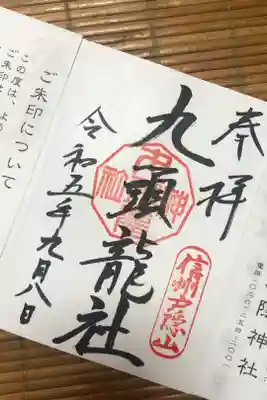 奉拝
九頭龍社
令和五年九月八日
信州戸隠山
ご朱印について
この度は、よう
ご朱印は
隠神社
電話〇二六-二五四-二〇〇一